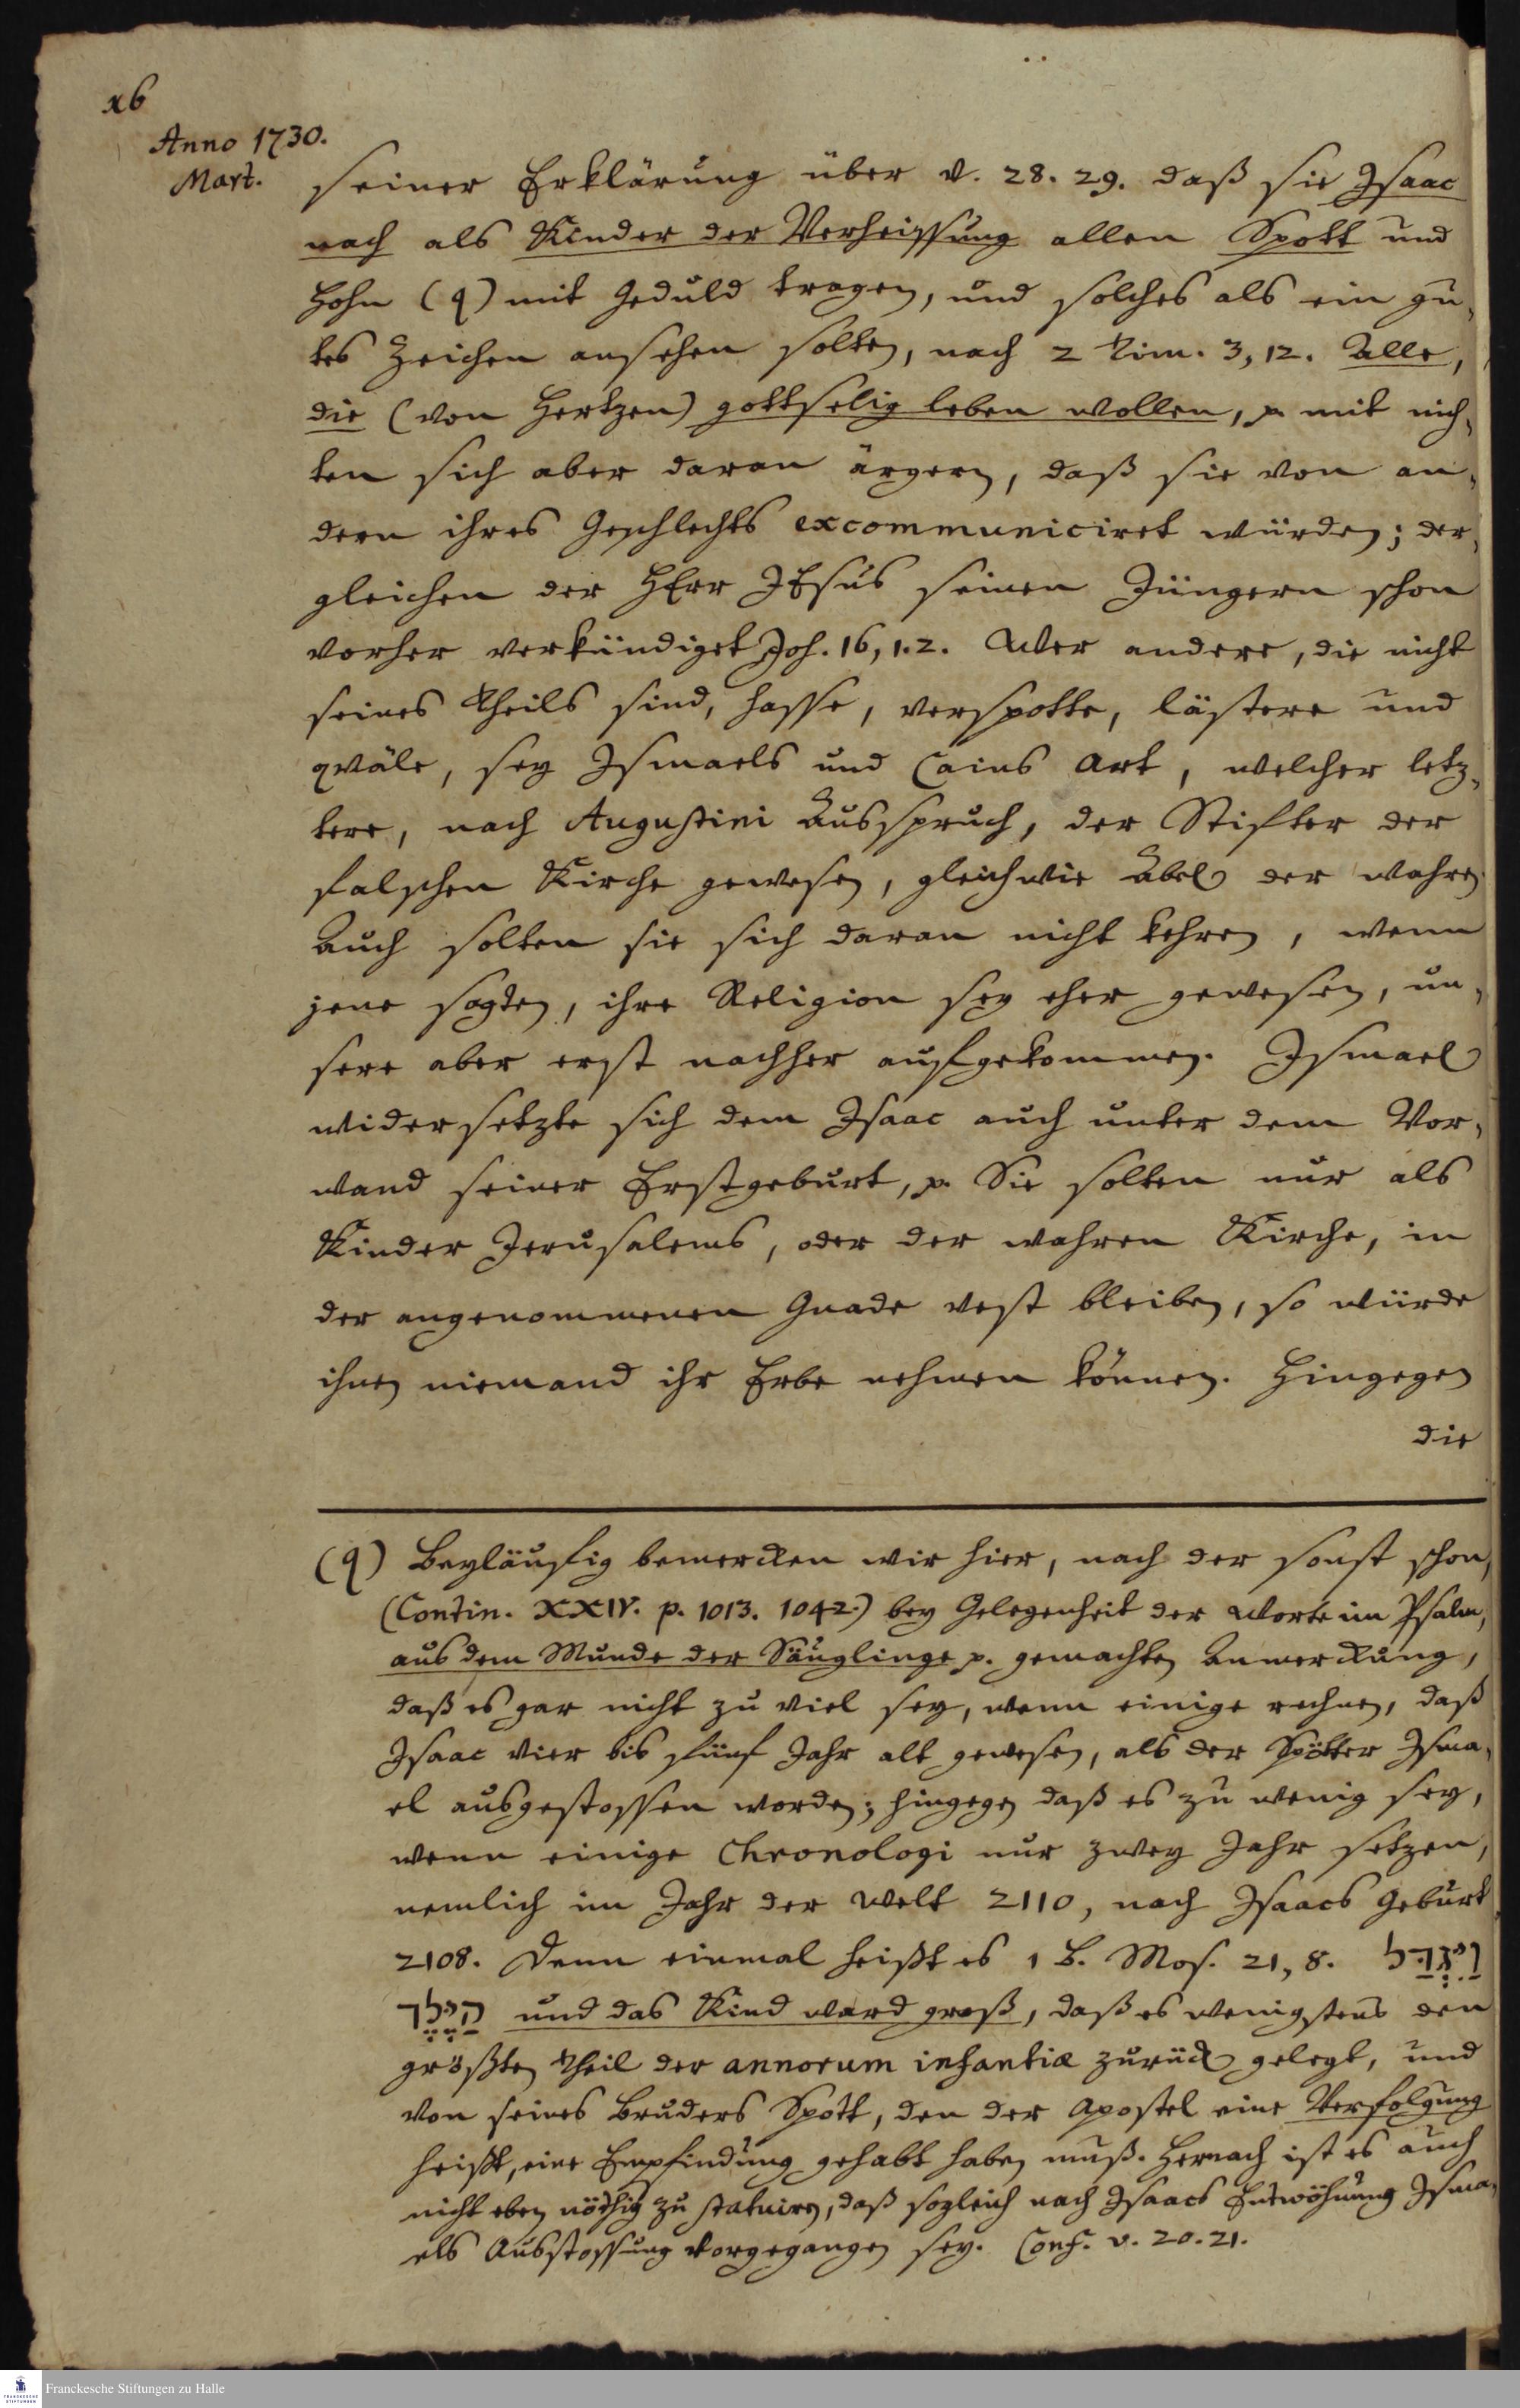 x6
Anno 1730.
Mart.
seiner Erklärung über v. 28. 29. daß sie Isaac
nach als Kinder der Verheissung allen Spott und
Hohn (q) mit Geduld tragen, und solches als ein gu-
tes Zeichen ansehen solten, nach 2 Tim. 3, 12. Alle,
die (von Hertzen) gottselig leben wollen, p. mit nich-
ten sich aber daran ärgern, daß sie von an-
dern ihres Geschlechts excommuniciret würden; der-
gleichen der HErr JEsus seinen Jüngern schon
vorher verkündiget Joh. 16, 1.2. Wer andere, die nicht
seines Theils sind, hasse, verspotte, lästere und
qväle, sey Ismaels und Cains Art, welcher letz-
tere, nach Augustini Ausspruch, der Stifter der
falschen Kirche gewesen, gleichwie Abel der wahren.
Auch solten sie sich daran nicht kehren, wenn
jene sagten, ihre Religion sey eher gewesen, un-
sere aber erst nachher aufgekommen. Ismael
widersetzte sich dem Isaac auch unter dem Vor-
wand seiner Erstgeburt, p. Sie solten nur als
Kinder Jerusalems, oder der wahren Kirche, in
der angenommenen Gnade vest bleiben, so würde
ihnen niemand ihr Erbe nehmen können. Hingegen
die
(q) Beyläufig bemercken wir hier, nach der sonst schon,
(Contin. XXIV. p. 1013. 1042.) bey Gelegenheit der Worte im Psalm,
aus dem Munde der Säuglinge p. gemachten Anmerckung,
daß es gar nicht zu viel sey, wenn einige rechnen, daß
Isaac vier bis fünf Jahr alt gewesen, als der Spötter Isma-
el ausgestossen worden; hingegen daß es zu wenig sey,
wenn einige Chronologi nur zwey Jahr setzen,
nemlich im Jahr der Welt 2110, nach Isaacs Geburt
2108. Denn einmal heißt es 1 B. Mos. 21, 8. וַיִּגְדַּל
הַיֶּלֶד und das Kind ward groß, daß es wenigstens den
größten Theil der annorum infantiæ zurück gelegt, und
von seines Bruders Spott, den der Apostel eine Verfolgung
heißt, eine Empfindung gehabt haben muß. Hernach ist es auch
nicht eben nöthig zu statuiren, daß sogleich nach Isaacs Entwöhnung Isma-
els Ausstossung vorgegangen sey. Conf. v. 20. 21.
FRANCKESCHE
STIFTUNGEN
Franckesche Stiftungen zu Halle